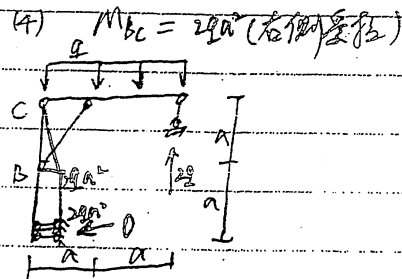 (4) M_BC = 2qa² (右侧受拉)
q
C
a
B
2qa²
2q
a
2qa²
0
a a